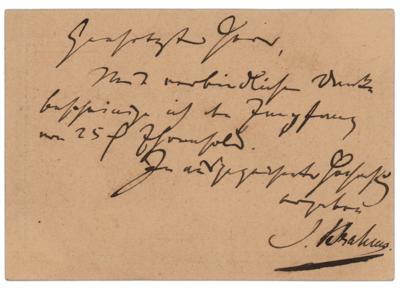 Geehrtester Herr,
Mit verbindlichem Dank
bescheinige ich den Empfang
von 25 f
In ausgezeichneter Hochachtung
ergeben
J. Brahms.